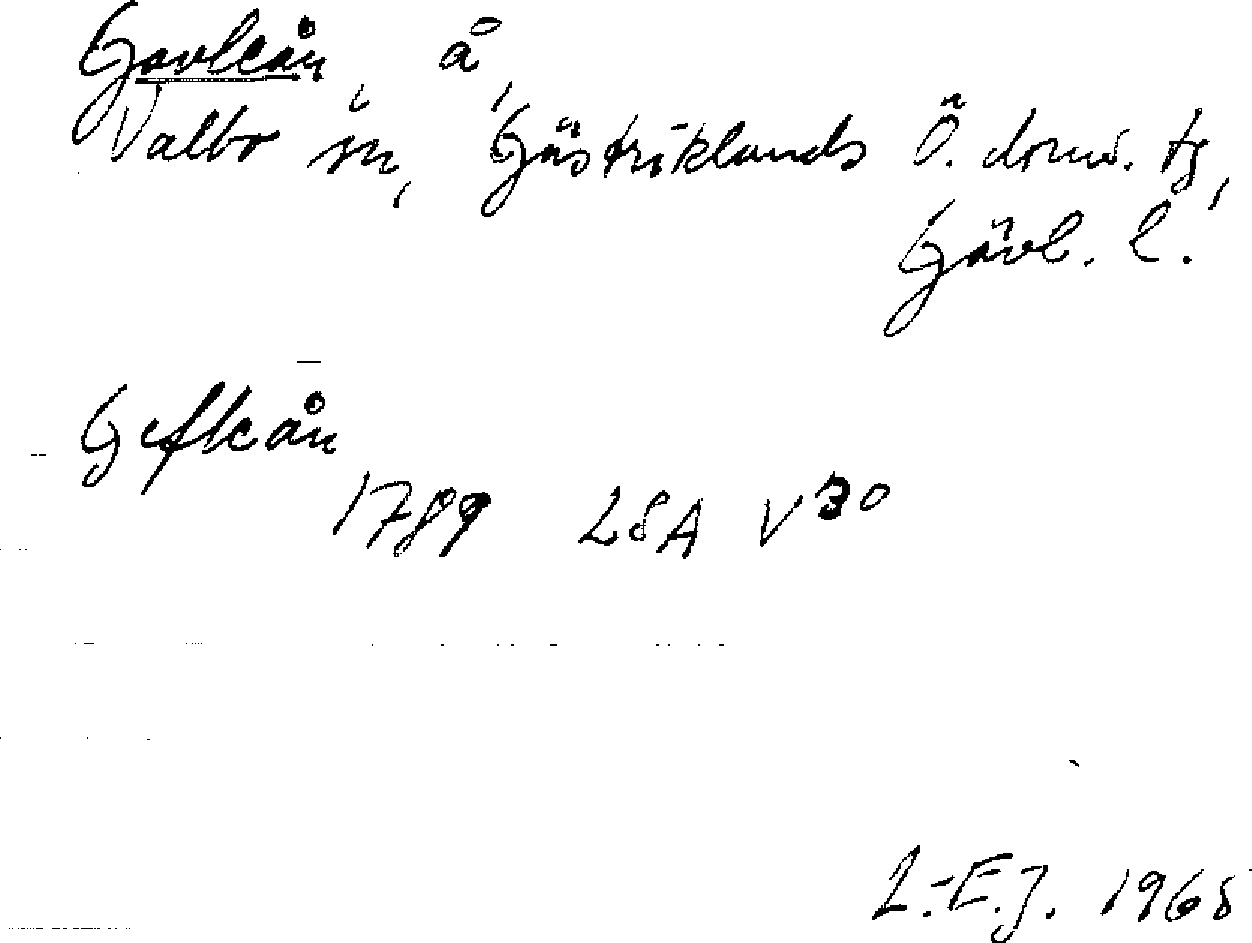 Gavleån, å,
Valbo sn, Gästriklands Ö. doms. tg,
Gävl. l.
Gefleån
1789 LSA V 30
L.-E.J. 1965